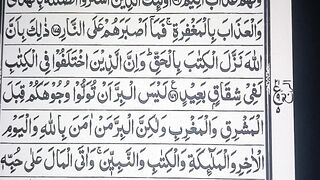 وَالْعَذَابَ بِالْمَغْفِرَةِ ۚ فَمَآ اَصْبَرَهُمْ عَلَى النَّارِ ۝ ذٰلِكَ بِاَنَّ
اللّٰهَ نَزَّلَ الْكِتٰبَ بِالْحَقِّ ؕ وَاِنَّ الَّذِيْنَ اخْتَلَفُوْا فِى الْكِتٰبِ
لَفِىْ شِقَاقٍۢ بَعِيْدٍ ۝ لَيْسَ الْبِرَّ اَنْ تُوَلُّوْا وُجُوْهَكُمْ قِبَلَ
الْمَشْرِقِ وَالْمَغْرِبِ وَلٰكِنَّ الْبِرَّ مَنْ اٰمَنَ بِاللّٰهِ وَالْيَوْمِ
الْاٰخِرِ وَالْمَلٰٓئِكَةِ وَالْكِتٰبِ وَالنَّبِيّٖنَ ۚ وَاٰتَى الْمَالَ عَلٰى حُبِّهٖ